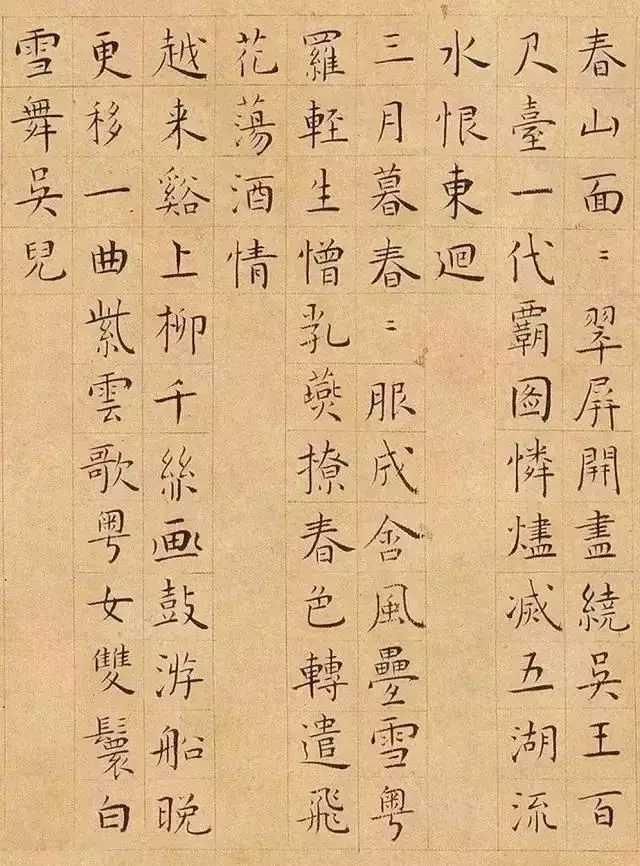 春山面〻翠屏開盡繞吳王百
尺臺一代霸圖憐燼滅五湖流
水恨東迴
三月暮春〻服成含風疊雪粤
羅輕生憎乳燕撩春色轉遣飛
花蕩酒情
越来谿上柳千絲画鼓游船晚
更移一曲紫雲歌粤女雙鬟白
雪舞吳兒